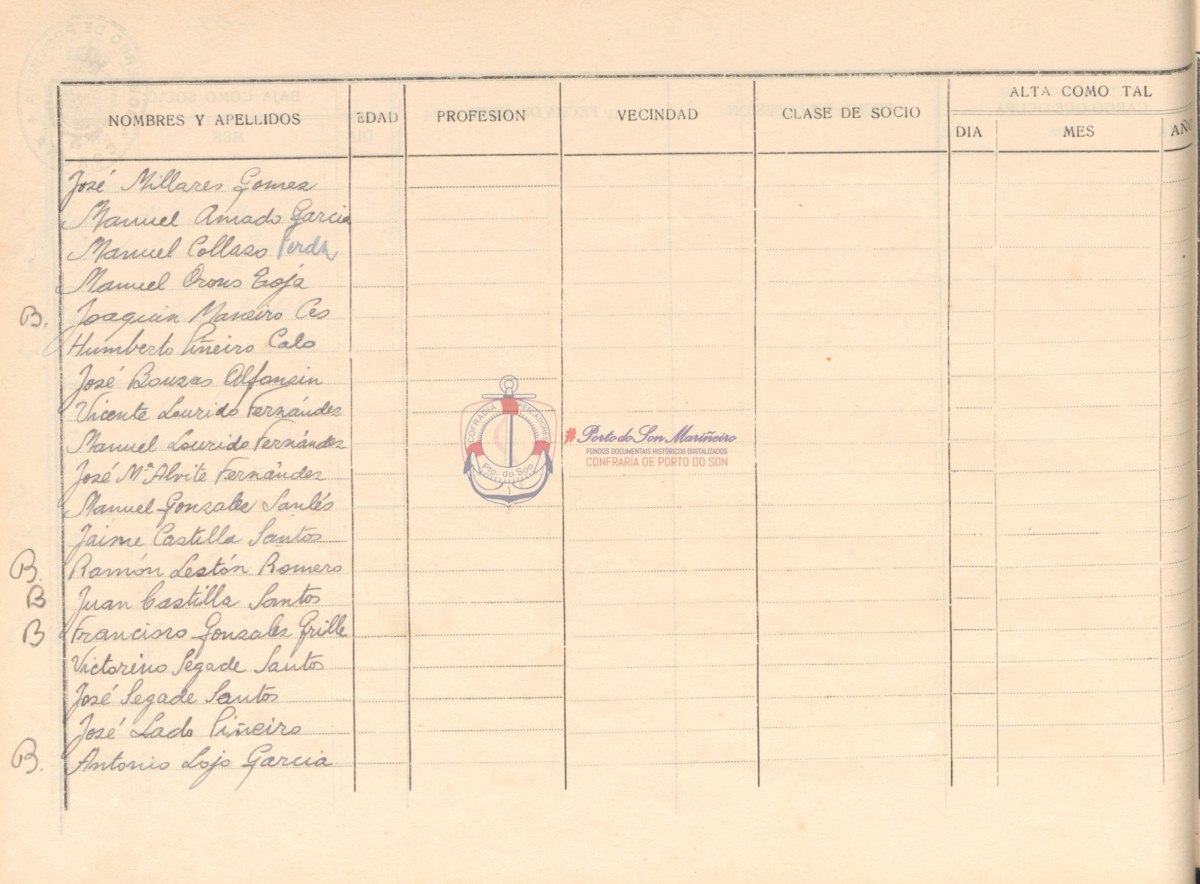 ALTA COMO TAL
NOMBRES Y APELLIDOS EDAD PROFESION VECINDAD CLASE DE SOCIO DIA MES AÑO
José Millares Gomez
Manuel Amado Garcia
Manuel Collazo
Manuel Orous Lioja
B. Joaquin Maneiro Ces
Humberto Piñeiro Calo
José Bouzas Alfonsin
Vicente Lourido Fernández
Manuel Lourido Fernández
José Mª Alvite Fernandez
Manuel Gonzalez Saulés
Jaime Castilla Santos
B. Ramón Lestón Romero
B Juan Castilla Santos
B Francisco Gonzalez Grille
Victorino Segade Santos
José Segade Santos
José Lado Piñeiro
B. Antonio Lojo Garcia
COFRADIA PESCADORES
Pto. do Son
# Porto do Son Mariñeiro
FONDOS DOCUMENTAIS HISTÓRICOS DIXITALIZADOS
CONFRARÍA DE PORTO DO SON